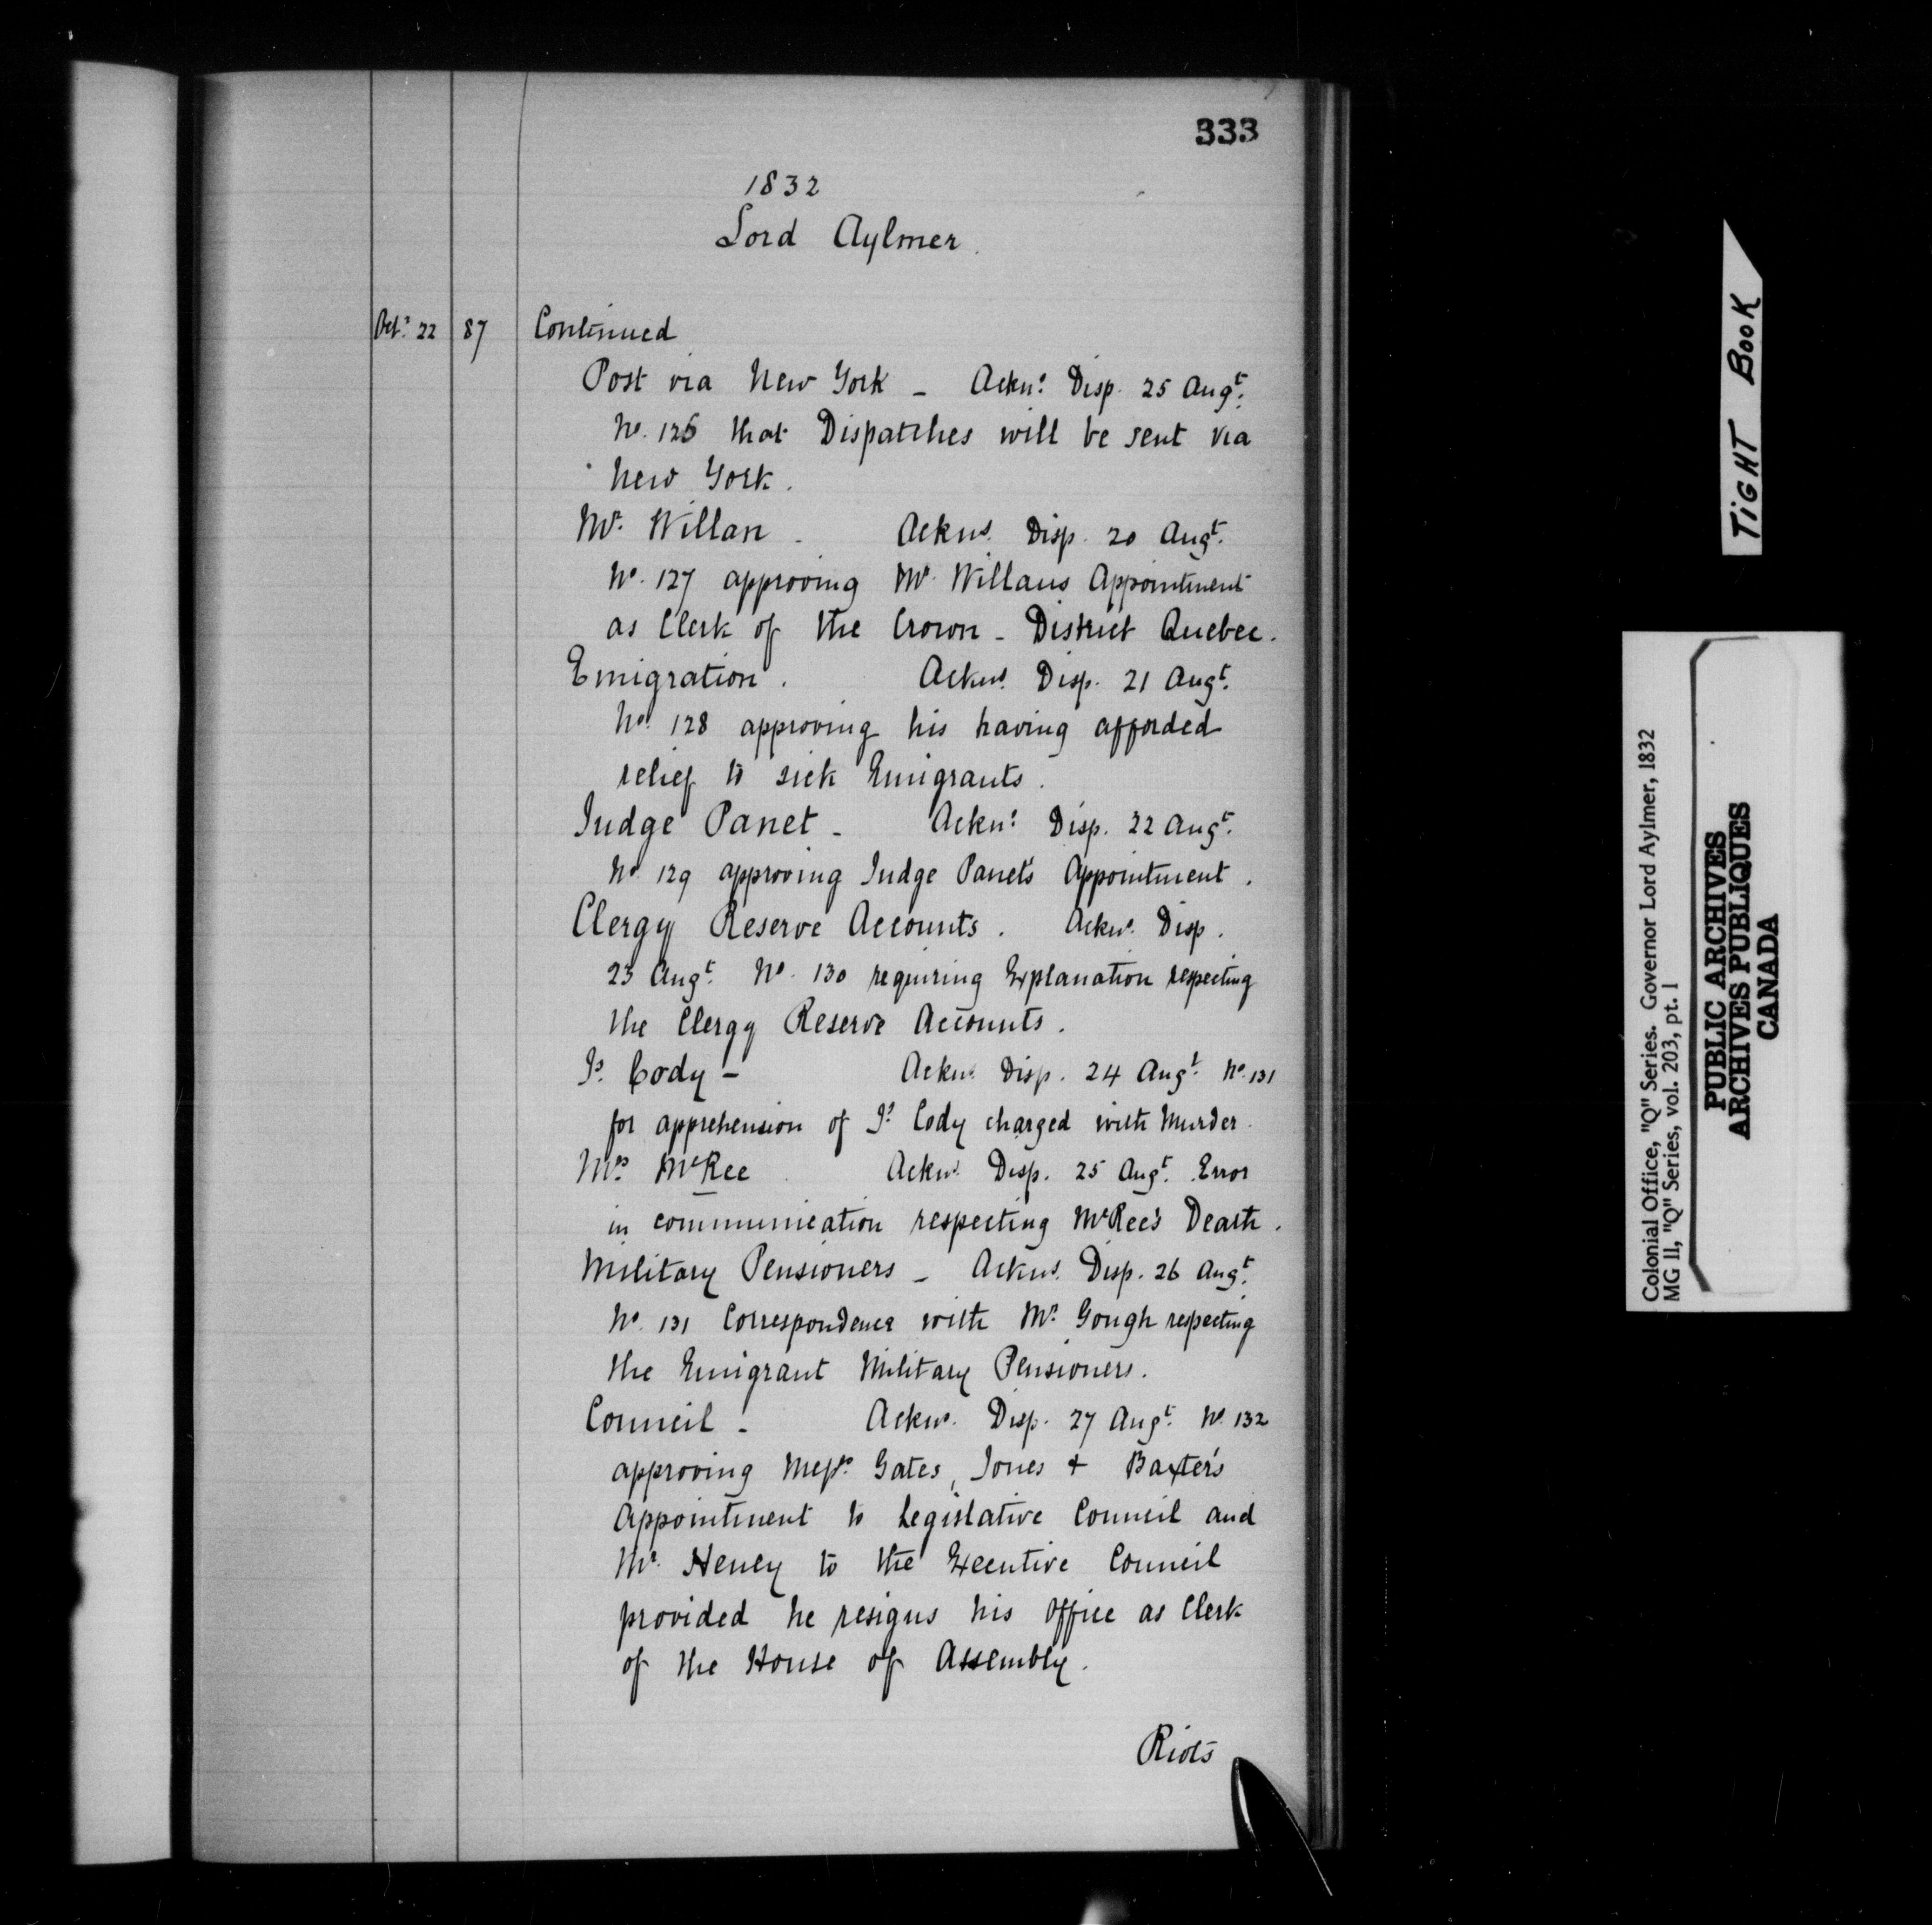 333
1832
Lord Aylmer.
Oct.r 22 87 Continued
Post via New York - Ackns. Disp. 25 Augt.
No. 126 that Dispatches will be sent via
New York.
Mr. Willan - Ackns. Disp. 20 Augt.
No. 127 approving Mr. Willans Appointment
as Clerk of the Crown - District Quebec.
Emigration. Ackns. Disp. 21 Augt.
No. 128 approving his having afforded
relief to sick Emigrants.
Judge Panet - Ackns. Disp. 22 Augt.
No. 129 approving Judge Panet's Appointment.
Clergy Reserve Accounts. Ackns. Disp.
23 Augt. No. 130 requiring Explanation respecting
the Clergy Reserve Accounts.
Js. Cody - Ackns. Disp. 24 Augt. No. 131
for apprehension of Js. Cody charged with Murder.
Mrs. McRee Ackns. Disp. 25 Augt. Error
in communication respecting McRee's Death.
Military Pensioners - Ackns. Disp. 26 Augt.
No. 131 Correspondence with Mr. Gough respecting
the Emigrant Military Pensioners.
Council - Ackns. Disp. 27 Augt. No. 132
approving Messrs. Gates, Jones & Baxter's
Appointment to Legislative Council and
Mr. Heney to the Executive Council
provided he resigns his Office as Clerk
of the House of Assembly.
Riots
TIGHT BOOK
Colonial Office, "Q" Series. Governor Lord Aylmer, 1832
MG 11, "Q" Series, vol. 203, pt. 1
PUBLIC ARCHIVES
ARCHIVES PUBLIQUES
CANADA